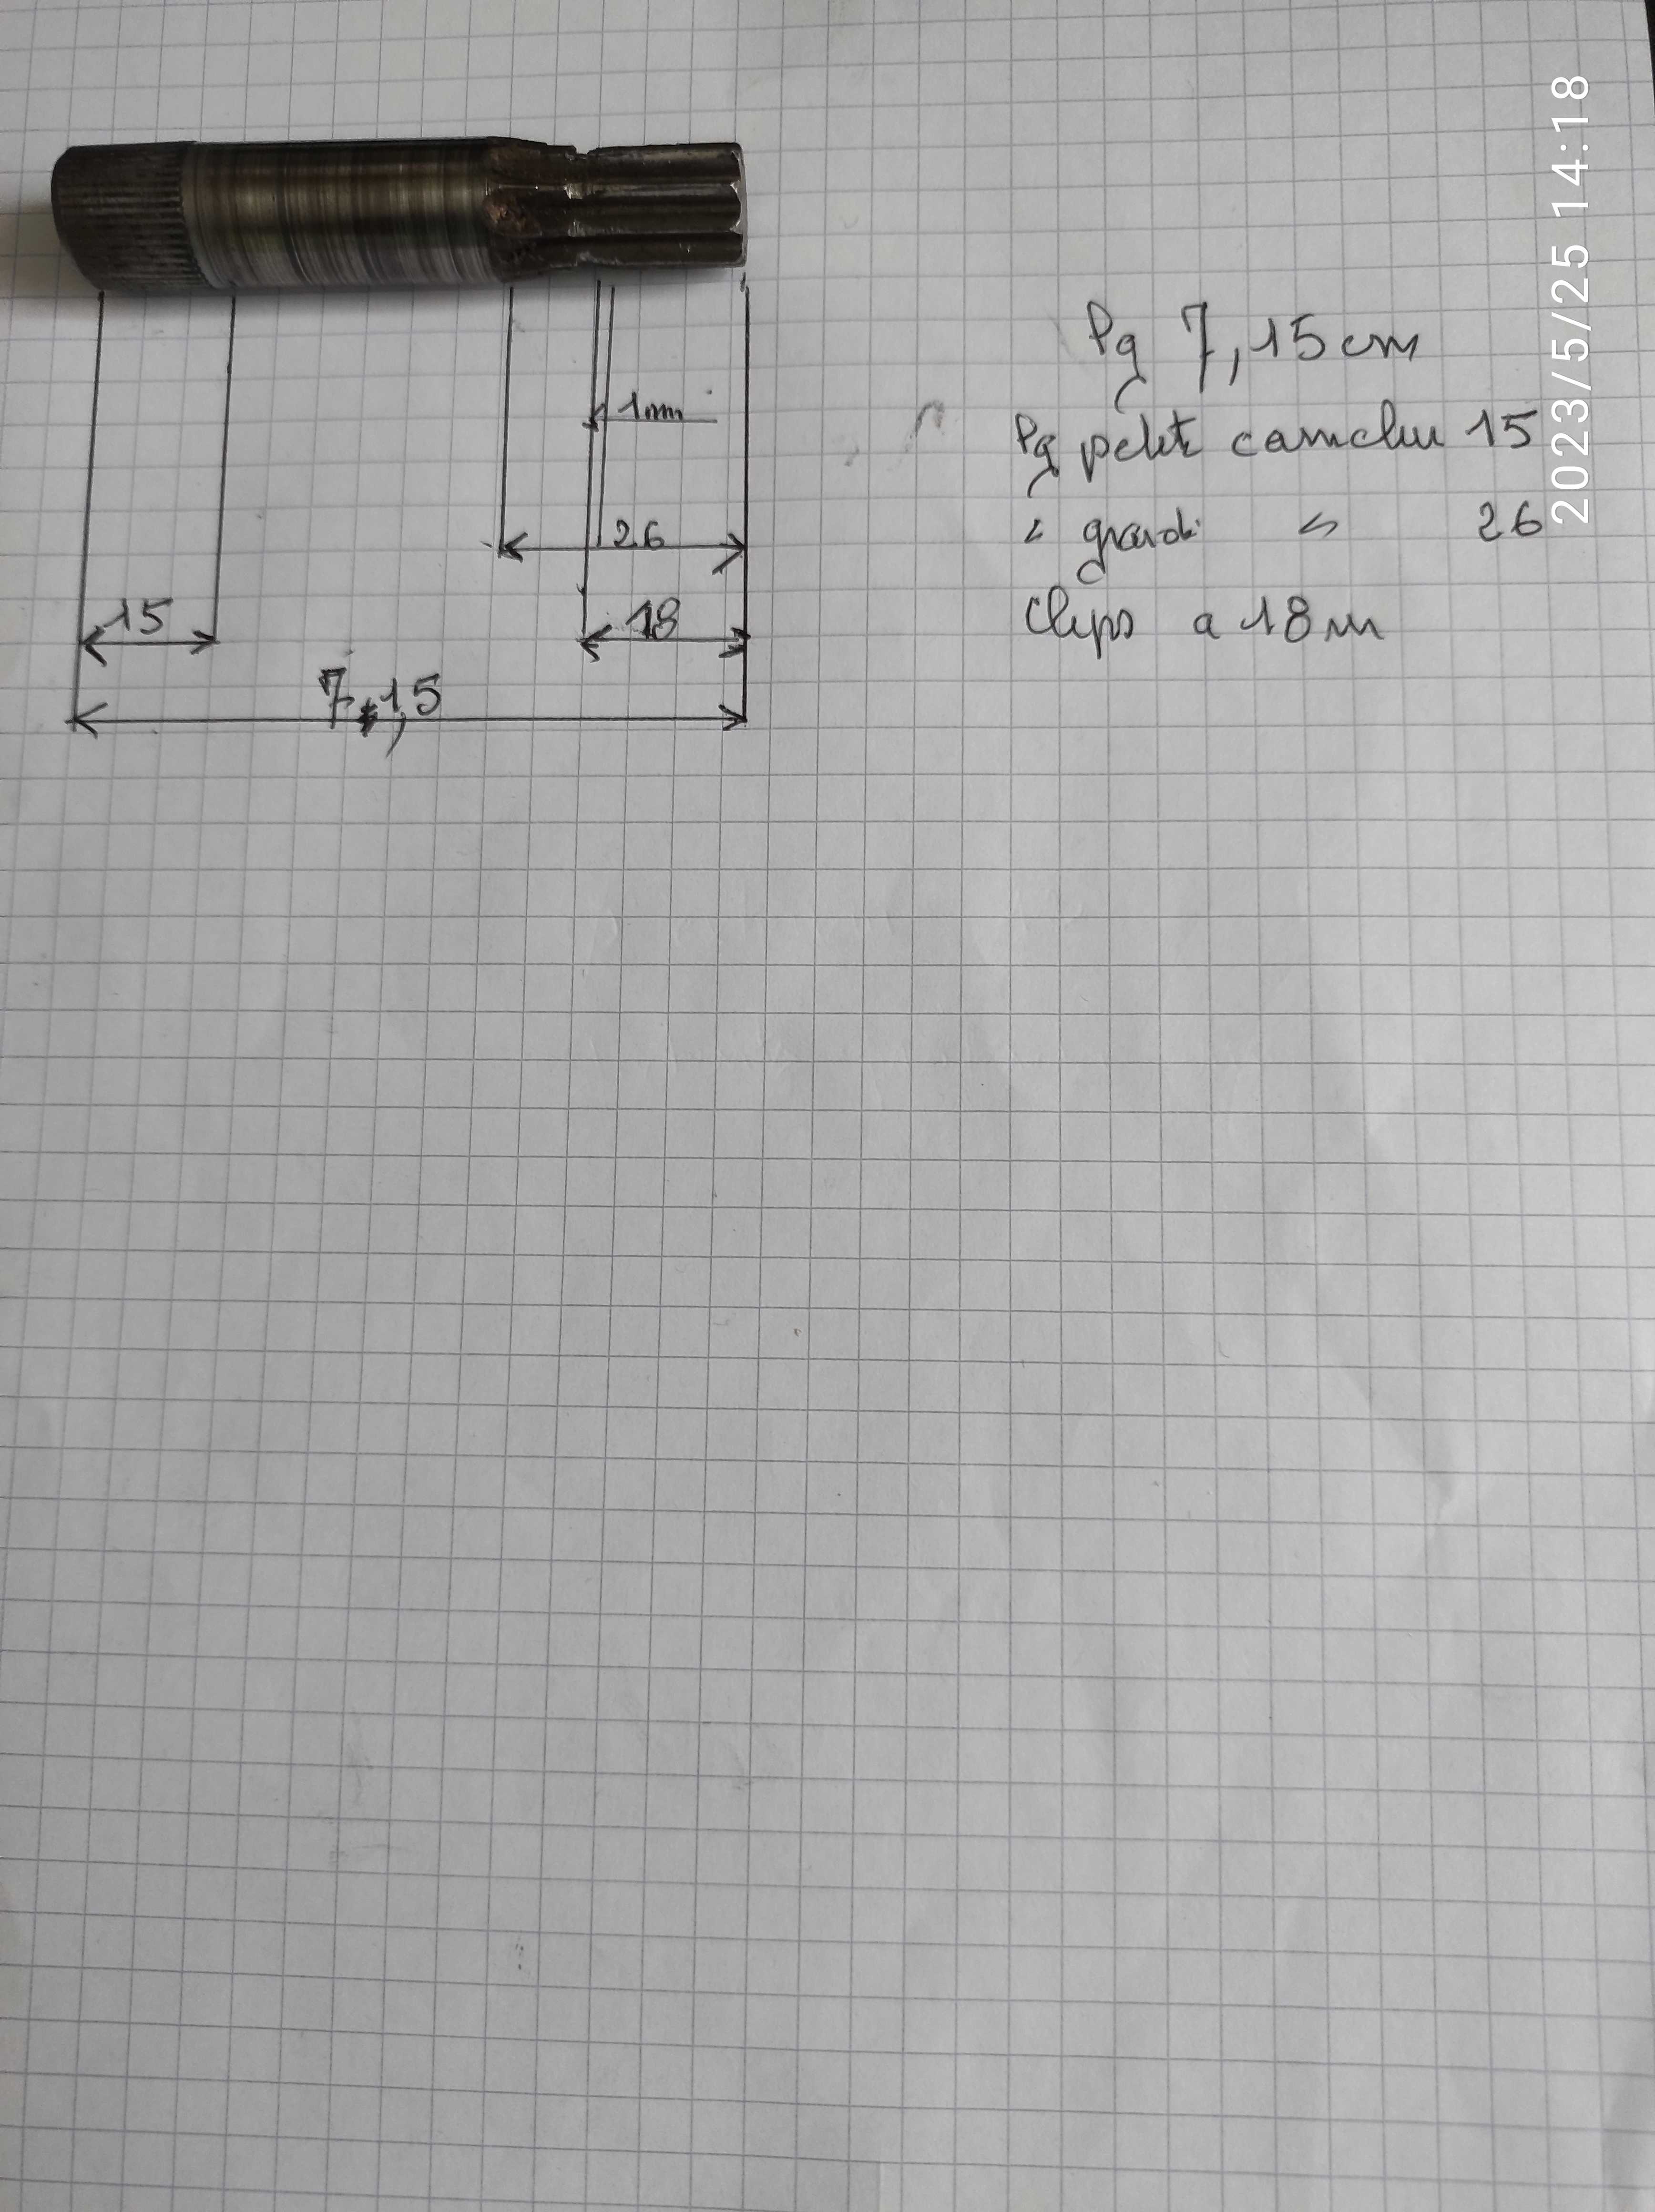 1mm
26
15
18
71,5
Lg 7,15cm
Lg petite cannelur 15
" grande " 26
Clips a 18 m
2023/5/25 14:18